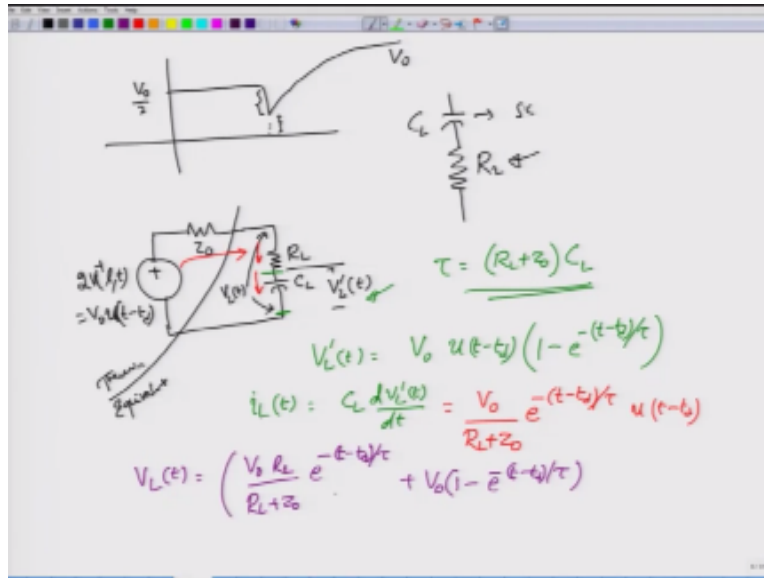 V₀
V₀/2
C_L → SC
R_L ←
Z₀
R_L
C_L
V_L(t)
V_L'(t)
+
= V₀ u(t-t_d)
Equivalent
τ = (R_L+Z₀) C_L
V_L'(t) = V₀ u(t-t_d) (1 - e^{-(t-t_d)/τ})
i_L(t) = C_L dV_L'(t)/dt = V₀/(R_L+Z₀) e^{-(t-t_d)/τ} u(t-t_d)
V_L(t) = ( V₀ R_L/(R_L+Z₀) e^{-(t-t_d)/τ} + V₀(1 - e^{-(t-t_d)/τ})